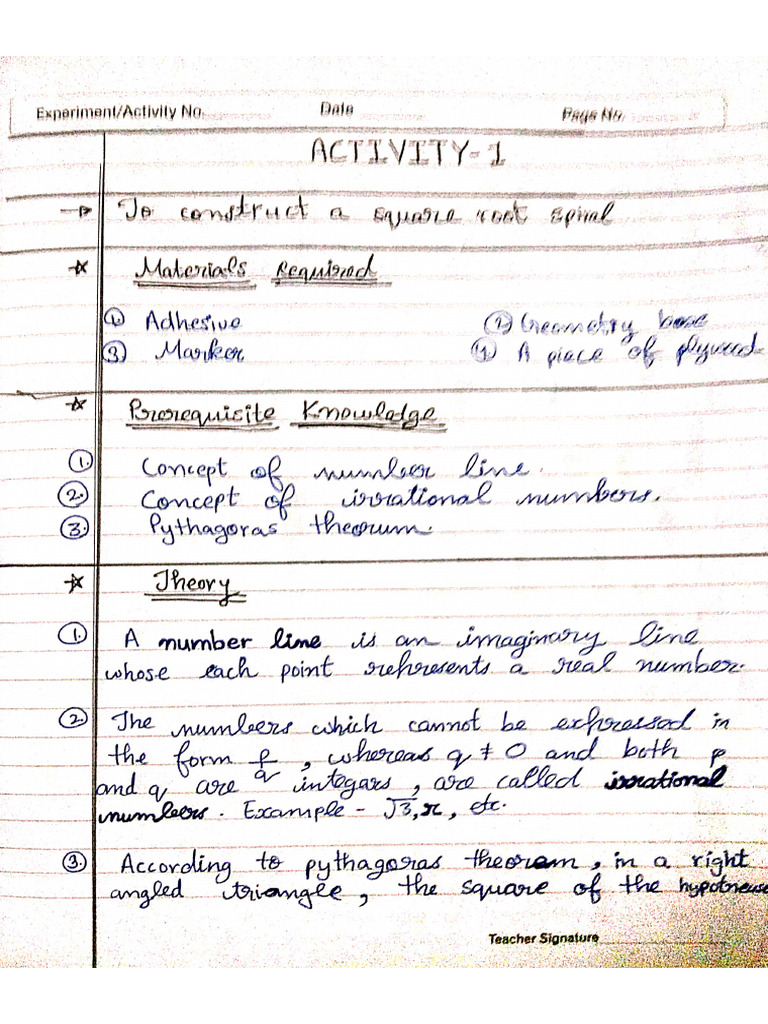 Experiment/Activity No. Date Page No.
ACTIVITY-1
To construct a square root spiral
Materials Required
① Adhesive ② Geometry boxe
③ Marker ④ A piece of plywood
Prerequisite Knowledge
①. Concept of number line.
②. Concept of irrational numbers.
③. Pythagoras theorum.
Theory
①. A number line is an imaginary line
whose each point represents a real number.
②. The numbers which cannot be expressed in
the form p/q, whereas q ≠ 0 and both p
and q are integars, are called irrational
numbers. Example - √3, π, etc.
③. According to pythagoras theorem, in a right
angled triangle, the square of the hypotneuse
Teacher Signature